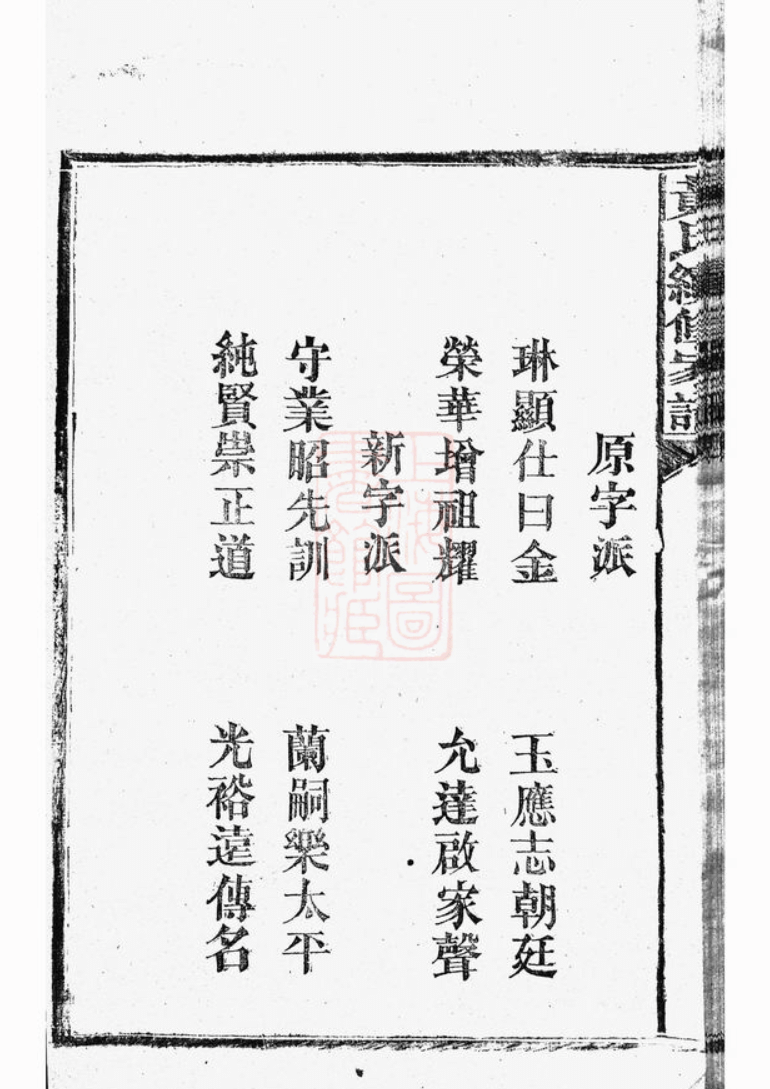 黃氏續修家譜
原字派
琳顯仕曰金 玉應志朝廷
榮華增祖耀 允達啟家聲
新字派
守業昭先訓 蘭嗣樂太平
純賢崇正道 光裕遠傳名
上海圖書館藏